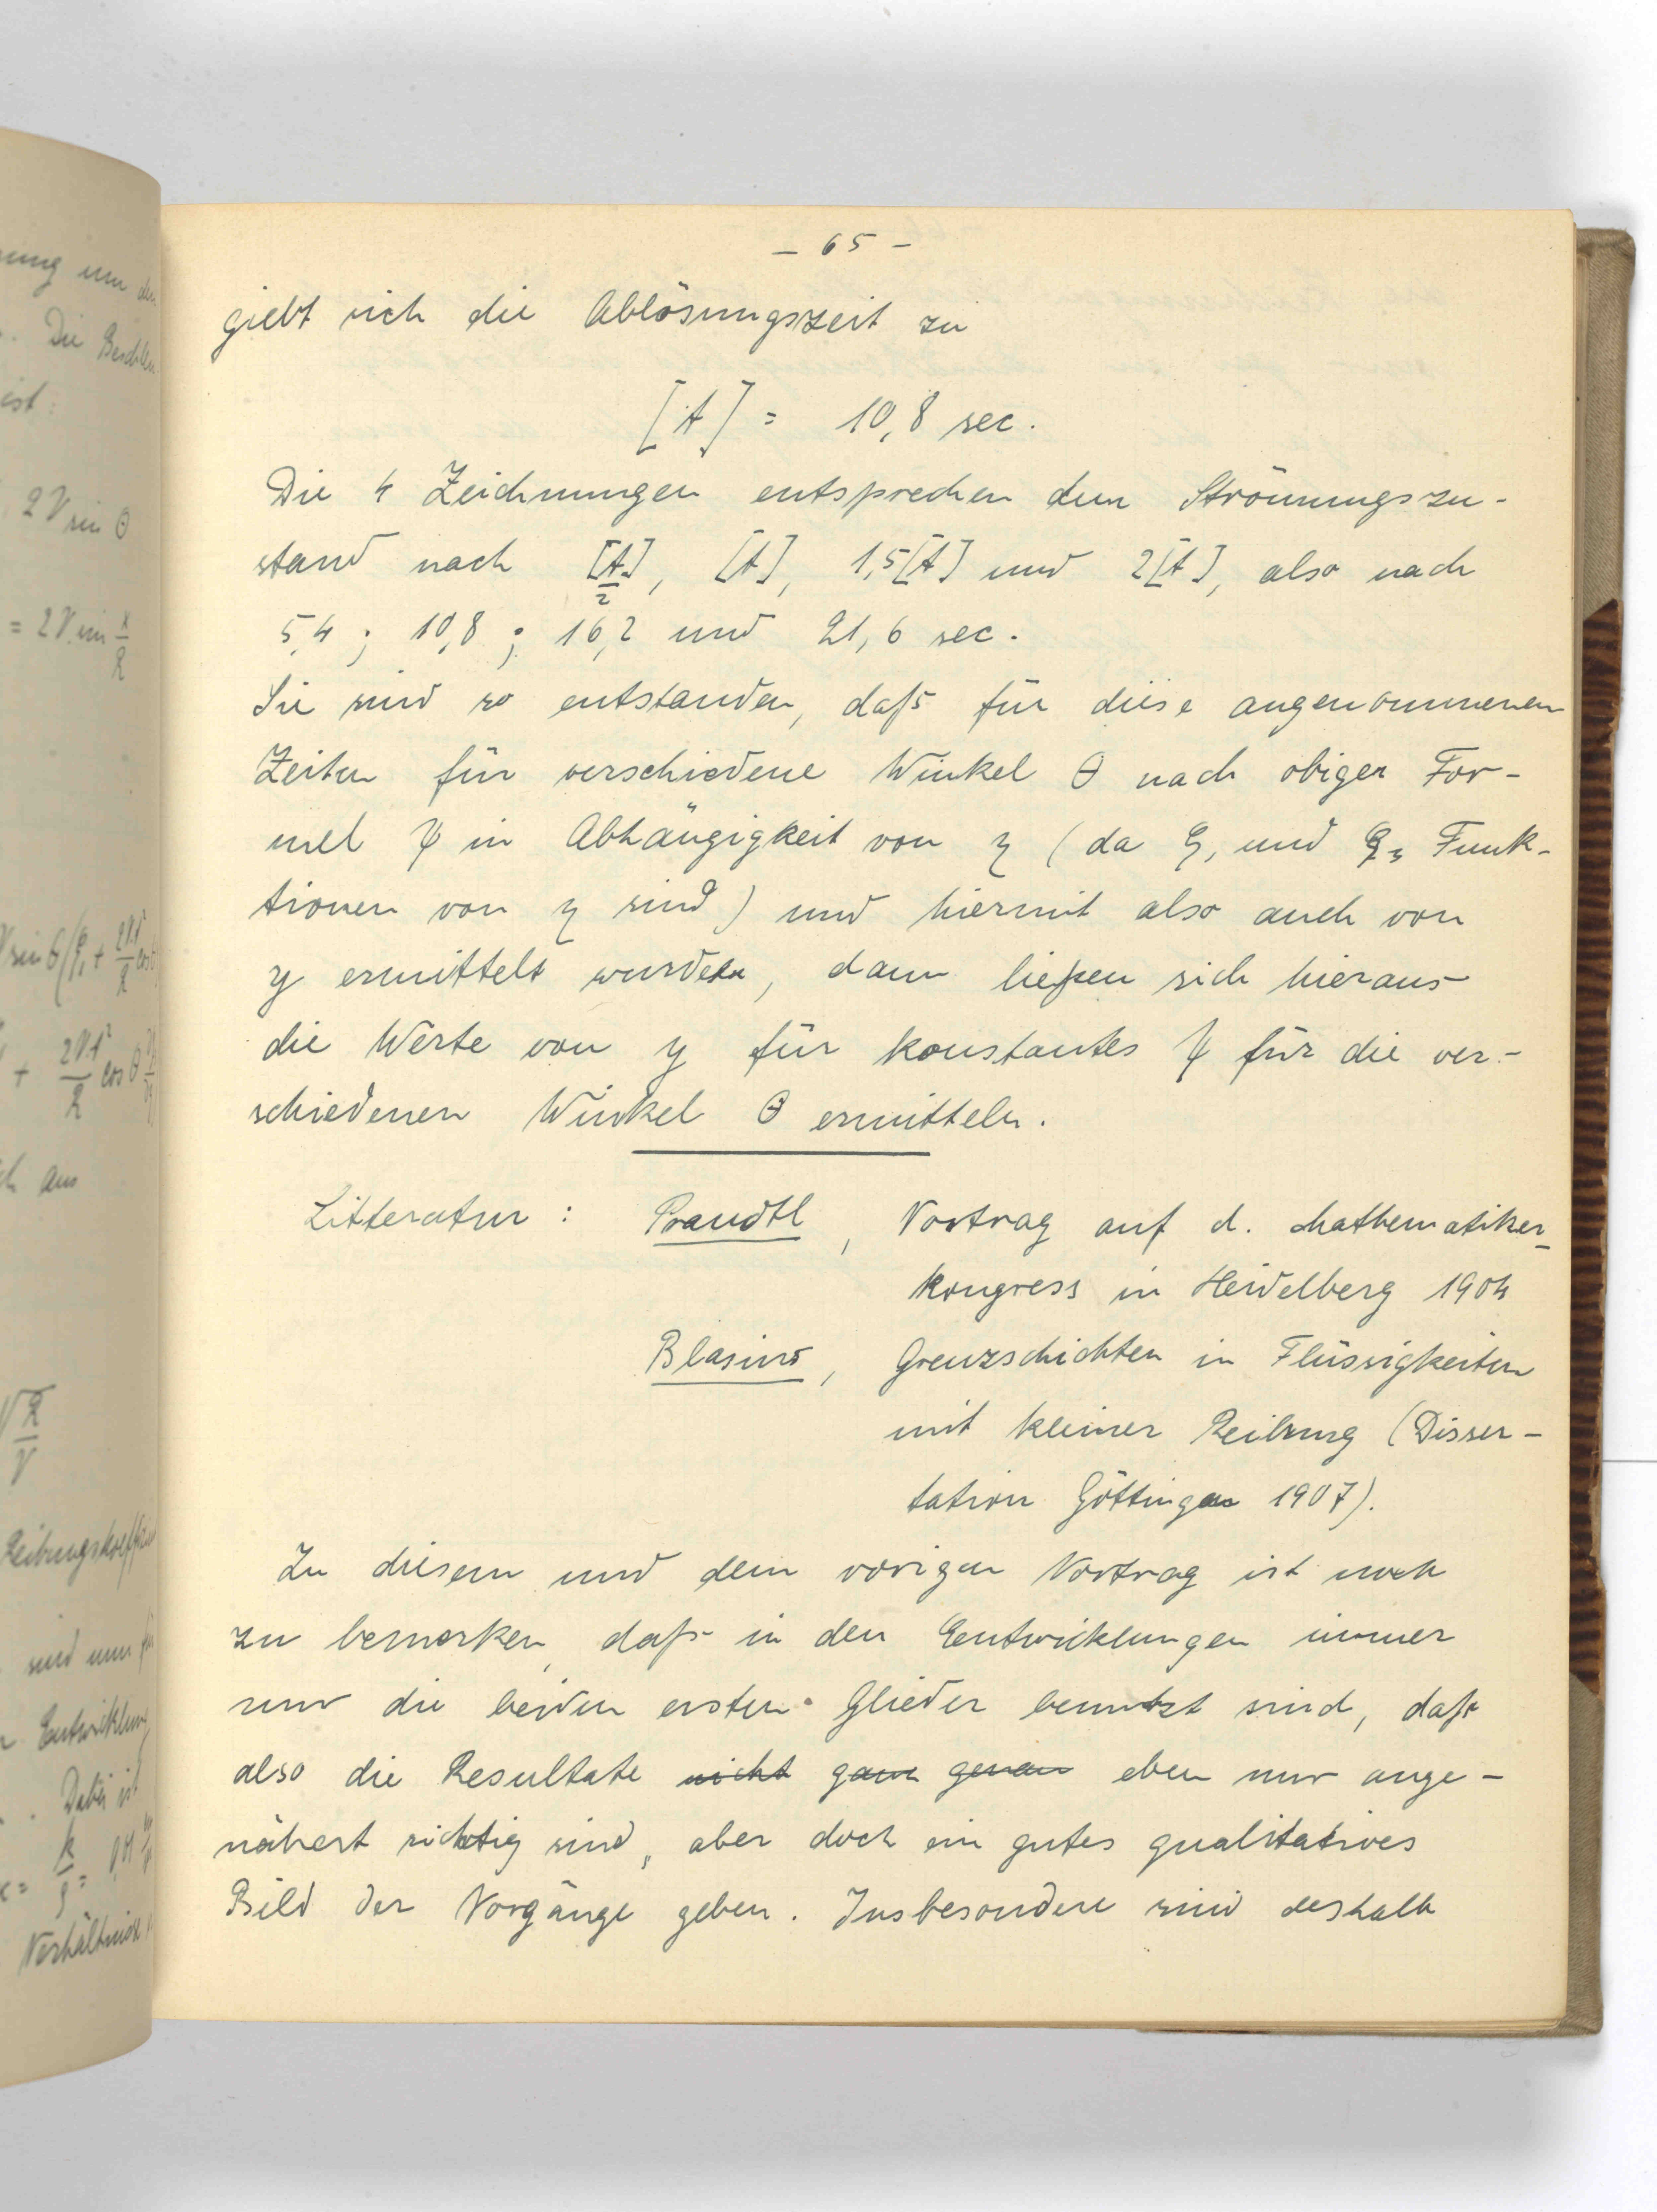 - 65 -
giebt sich die Ablösungszeit zu
[t] = 10,8 sec.
Die 4 Zeichnungen entsprechen dem Strömungszu-
stand nach [t]/2, [t], 1,5[t] und 2[t], also nach
5,4 ; 10,8 ; 16,2 und 21,6 sec.
Sie sind so entstanden, daß für diese angenommenen
Zeiten für verschiedene Winkel θ nach obiger For-
mel ψ in Abhängigkeit von η (da ζ₁ und ζ₃ Funk-
tionen von η sind) und hiermit also auch von
y ermittelt wurden, dann ließen sich hieraus
die Werte von y für konstantes ψ für die ver-
schiedenen Winkel θ ermitteln.
Litteratur : Prandtl, Vortrag auf d. Mathematiker-
kongress in Heidelberg 1904
Blasius, Grenzschichten in Flüssigkeiten
mit kleiner Reibung (Disser-
tation Göttingen 1907).
Zu diesem und dem vorigen Vortrag ist noch
zu bemerken, daß in den Entwicklungen immer
nur die beiden ersten Glieder benutzt sind, daß
also die Resultate nicht ganz genau eben nur ange-
nähert richtig sind, aber doch ein gutes qualitatives
Bild der Vorgänge geben. Insbesondere sind deshalb